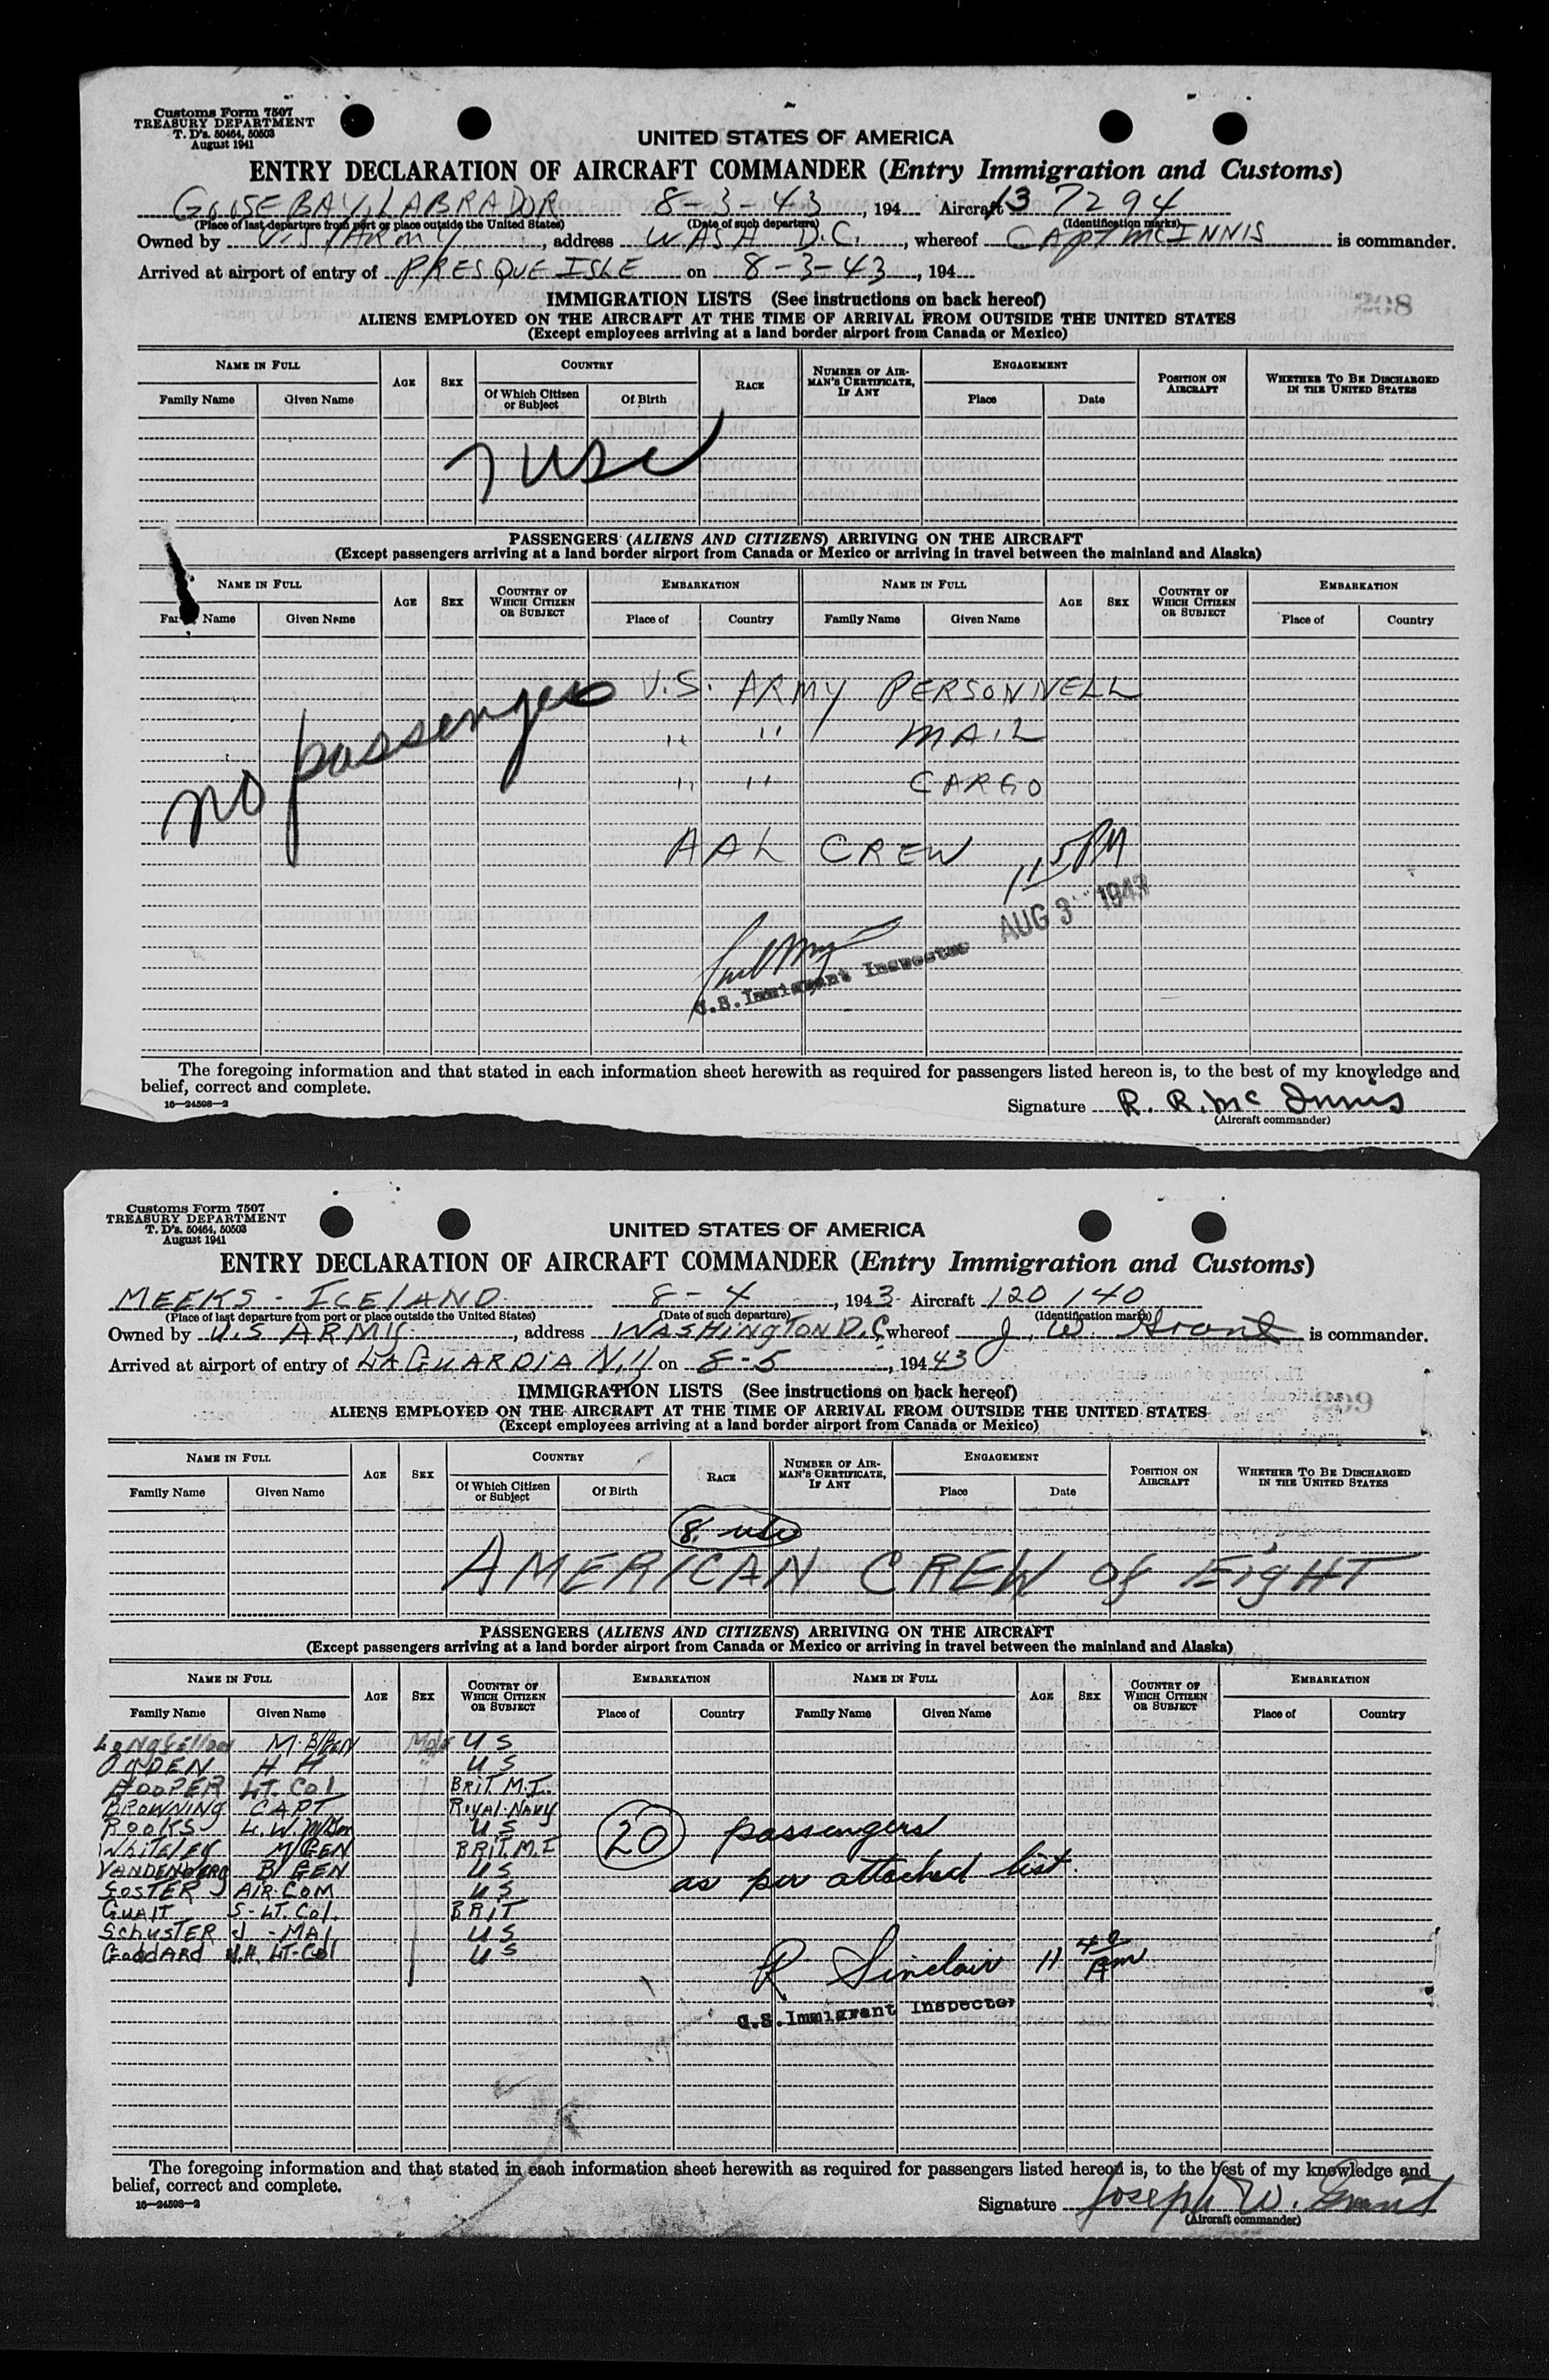 Customs Form 7507
TREASURY DEPARTMENT
T. D's. 50464, 50503
August 1941
UNITED STATES OF AMERICA
ENTRY DECLARATION OF AIRCRAFT COMMANDER (Entry Immigration and Customs)
GOOSE BAY, LABRADOR 8-3-43, 194 Aircraft 13 7294
(Place of last departure from port or place outside the United States) (Date of such departure) (Identification marks)
Owned by U.S. ARMY, address WASH D.C., whereof CAPT MCINNIS is commander.
Arrived at airport of entry of PRESQUE ISLE on 8-3-43, 194
IMMIGRATION LISTS (See instructions on back hereof)
ALIENS EMPLOYED ON THE AIRCRAFT AT THE TIME OF ARRIVAL FROM OUTSIDE THE UNITED STATES
(Except employees arriving at a land border airport from Canada or Mexico)
NAME IN FULL AGE SEX COUNTRY RACE NUMBER OF AIRMAN'S CERTIFICATE, IF ANY ENGAGEMENT POSITION ON AIRCRAFT WHETHER TO BE DISCHARGED IN THE UNITED STATES
Family Name Given Name Of Which Citizen or Subject Of Birth Place Date
7 usc
PASSENGERS (ALIENS AND CITIZENS) ARRIVING ON THE AIRCRAFT
(Except passengers arriving at a land border airport from Canada or Mexico or arriving in travel between the mainland and Alaska)
NAME IN FULL AGE SEX COUNTRY OF WHICH CITIZEN OR SUBJECT EMBARKATION NAME IN FULL AGE SEX COUNTRY OF WHICH CITIZEN OR SUBJECT EMBARKATION
Family Name Given Name Place of Country Family Name Given Name Place of Country
no passengers
U.S. ARMY PERSONNELL
" " MAIL
" " CARGO
AAL CREW
115 PM
AUG 3 1943
U.S. Immigrant Inspector
The foregoing information and that stated in each information sheet herewith as required for passengers listed hereon is, to the best of my knowledge and
belief, correct and complete.
16—24598-2
Signature R. R. McInnis
(Aircraft commander)
Customs Form 7507
TREASURY DEPARTMENT
T. D's. 50464, 50503
August 1941
UNITED STATES OF AMERICA
ENTRY DECLARATION OF AIRCRAFT COMMANDER (Entry Immigration and Customs)
MEEKS - ICELAND 8-4, 1943 Aircraft 120140
(Place of last departure from port or place outside the United States) (Date of such departure) (Identification marks)
Owned by U.S ARMY, address WASHINGTON D.C, whereof J. W. Grant is commander.
Arrived at airport of entry of LAGUARDIA N.Y on 8-5, 194 43
IMMIGRATION LISTS (See instructions on back hereof)
ALIENS EMPLOYED ON THE AIRCRAFT AT THE TIME OF ARRIVAL FROM OUTSIDE THE UNITED STATES
(Except employees arriving at a land border airport from Canada or Mexico)
NAME IN FULL AGE SEX COUNTRY RACE NUMBER OF AIRMAN'S CERTIFICATE, IF ANY ENGAGEMENT POSITION ON AIRCRAFT WHETHER TO BE DISCHARGED IN THE UNITED STATES
Family Name Given Name Of Which Citizen or Subject Of Birth Place Date
8. usc
AMERICAN CREW of EigHT
PASSENGERS (ALIENS AND CITIZENS) ARRIVING ON THE AIRCRAFT
(Except passengers arriving at a land border airport from Canada or Mexico or arriving in travel between the mainland and Alaska)
NAME IN FULL AGE SEX COUNTRY OF WHICH CITIZEN OR SUBJECT EMBARKATION NAME IN FULL AGE SEX COUNTRY OF WHICH CITIZEN OR SUBJECT EMBARKATION
Family Name Given Name Place of Country Family Name Given Name Place of Country
Longfellow M. B/GEN Male U S
OgDEN H H " U S
HOOPER LT. Col BRIT M.I.
BROWNING CAPT ROYAL NAVY
ROOKS L. W. M/Gen U S
Whiteley M/GEN BRIT. M.I
VANDENBERG B/GEN U S
FOSTER AIR. COM U S
Guait S- LT. Col. BRIT
SchUSTER J - MAJ U S
Goddard J.H. LT-Col U S
20 passengers
as per attached list.
R Sinclair 11 40 Am
U.S. Immigrant Inspector
The foregoing information and that stated in each information sheet herewith as required for passengers listed hereon is, to the best of my knowledge and
belief, correct and complete.
16—24598-2
Signature Joseph W. Grant
(Aircraft commander)